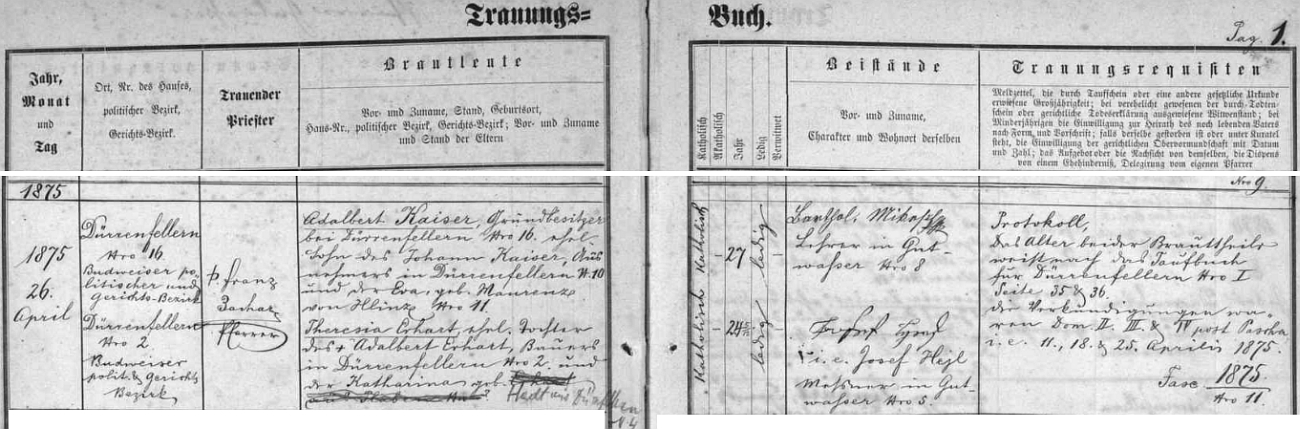 Trauungs=
Buch.
Pag. 1.
Jahr,
Monat
und
Tag
Ort, Nr. des Hauses,
politischer Bezirk,
Gerichts-Bezirk.
Trauender
Priester
Brautleute
Vor- und Zuname, Stand, Geburtsort,
Haus-Nr., politischer Bezirk, Gerichts-Bezirk; Vor- und Zuname
und Stand der Eltern
Katholisch
Akatholisch
Jahr
Ledig
Verwitwet
Beistände
Vor- und Zuname,
Charakter und Wohnort derselben
Trauungsrequisiten
Meldzettel, die durch Taufschein oder eine andere gesetzliche Urkunde
erwiesene Großjährigkeit; bei verehelicht gewesenen der durch Todten-
schein oder gerichtliche Todeserklärung ausgewiesene Witwenstand; bei
Minderjährigen die Einwilligung zur Heirath des noch lebenden Vaters
nach Form und Vorschrift; falls derselbe gestorben ist oder unter Kuratel
steht, die Einwilligung der gerichtlichen Obervormundschaft mit Datum
und Zahl; das Aufgebot oder die Nachsicht von demselben, die Dispens
von einem Ehehinderniß, Delegirung vom eigenen Pfarrer
1875
Nro 9.
1875
26.
April
Dürrenfellern
Nro 16
Budweiser po-
litischer und
Gerichts-Bezirk
Dürrenfellern
Nro 2
Budweiser
polit. & Gerichts
Bezirk
P. Franz
Pfarrer
Adalbert Kaiser, Grundbesitzer
bei Dürrenfellern Nro 16. ehel.
Sohn des Johann Kaiser, Aus
nehmers in Dürrenfellern N. 10
und der Eva, geb.
von Nro 11.
Theresia Erhart, ehel. Tochter
des + Adalbert Erhart, Bauers
in Dürrenfellern Nro 2. und
der Katharina, geb.
Katholisch Katholisch
27
24
ledig
ledig
Barthol.
Lehrer in Gut-
wasser Nro 8
i. e. Josef Hejl
Meßner in Gut-
wasser Nro 5.
Protokoll,
Das Alter beider Brauttheile
weist nach das Taufbuch
für Dürrenfellern Nro I
Seite 35 & 36.
die Verkündigungen wa-
ren Dom. II. III. & IV post Pascha
i. e. 11., 18. & 25. Aprilis 1875.
Fasc. 1875
Nro 11.